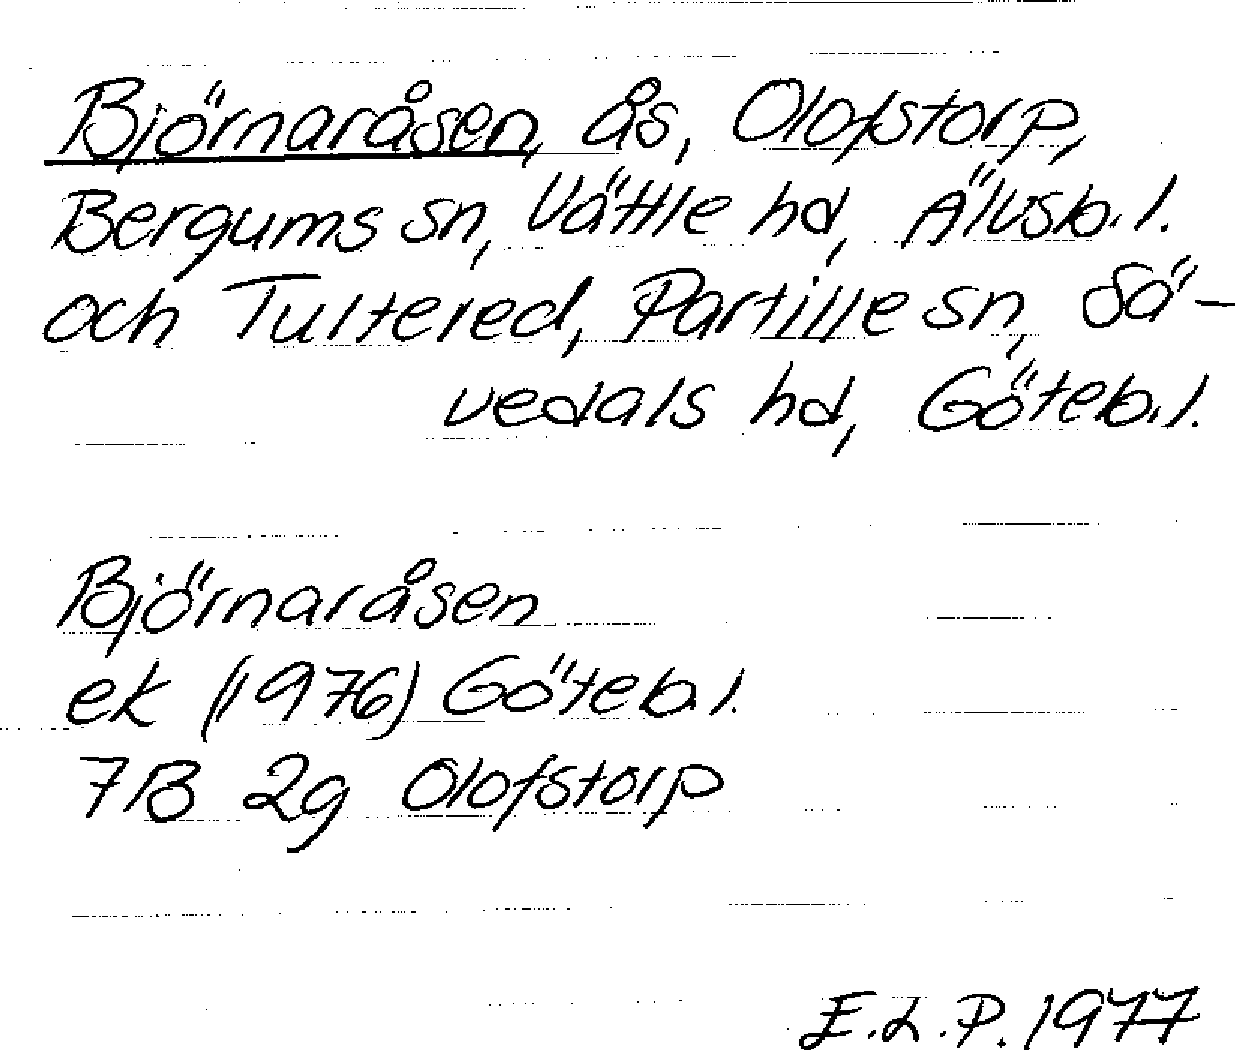 Björnaråsen, ås, Olofstorp,
Bergums sn, Vättle hd, Älvsb.l.
och Tultered, Partille sn, Sä-
vedals hd, Göteb.l.
Björnaråsen
ek (1976) Göteb.l.
7B 2g Olofstorp
E.L.P. 1977